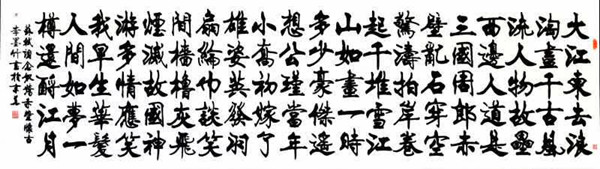 大江東去浪
淘盡千古風
流人物故壘
西邊人道是
三國周郎赤
壁亂石穿空
驚濤拍岸卷
起千堆雪江
山如畫一時
多少豪傑遙
想公瑾當年
小喬初嫁了
雄姿英發羽
扇綸巾談笑
間檣櫓灰飛
煙滅故國神
游多情應笑
我早生華髮
人間如夢一
樽還酹江月
蘇軾詞念奴嬌赤壁懷古